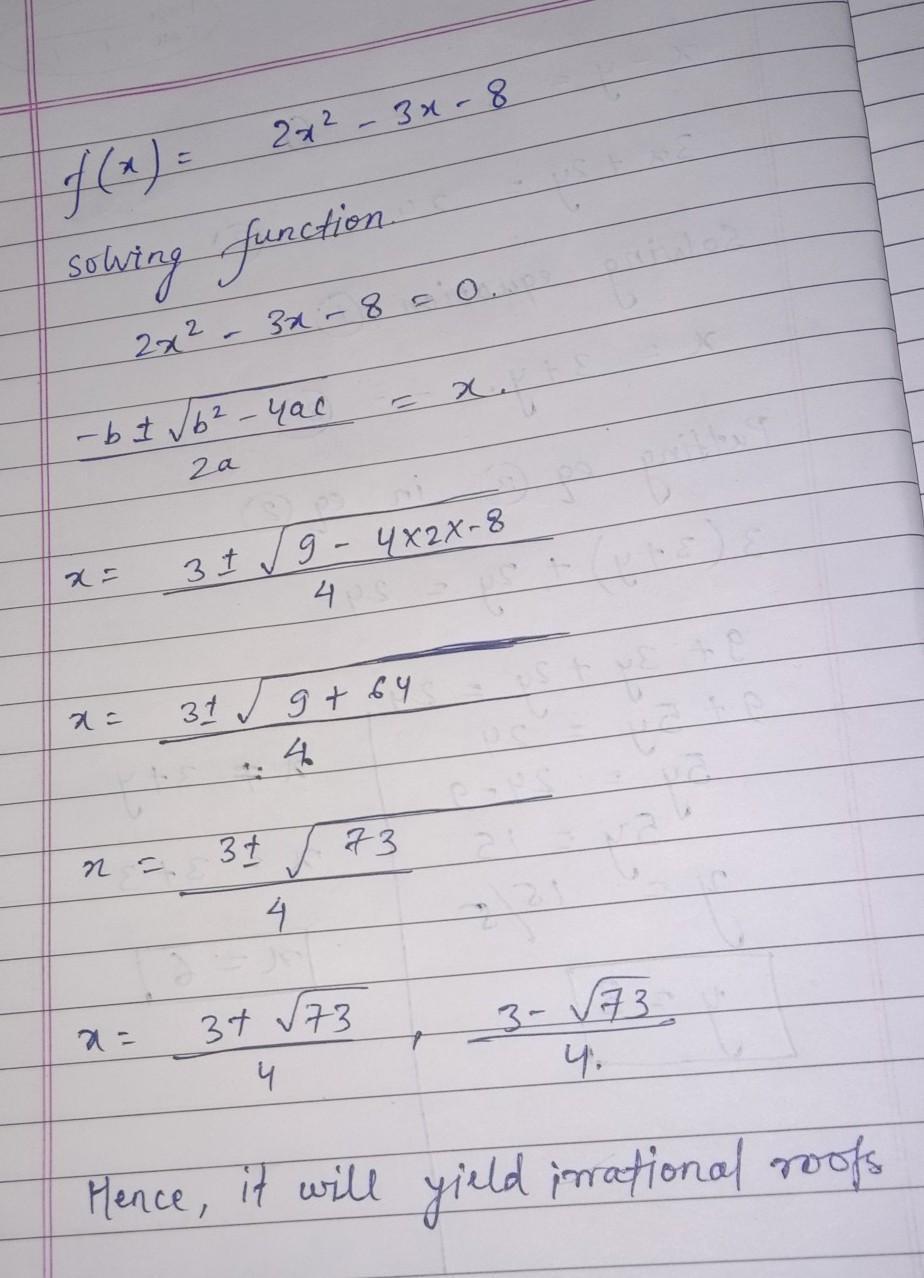 f(x) = 2x² - 3x - 8
solving function.
2x² - 3x - 8 = 0.
-b ± √b² - 4ac / 2a = x.
x = 3 ± √9 - 4×2×-8 / 4
x = 3± √9 + 64 / 4
x = 3± √73 / 4
x = 3+ √73 / 4 , 3- √73 / 4.
Hence, it will yield irrational roots